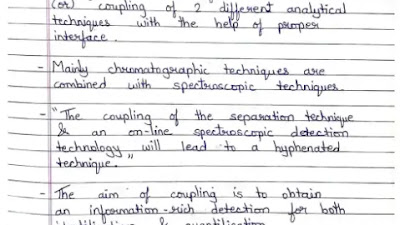 (or) coupling of 2 different analytical
techniques with the help of proper
interface.
- Mainly chromatographic techniques are
combined with spectroscopic techniques.
- "The coupling of the separation technique
& an on-line spectroscopic detection
technology will lead to a hyphenated
technique."
- The aim of coupling is to obtain
an information-rich detection for both